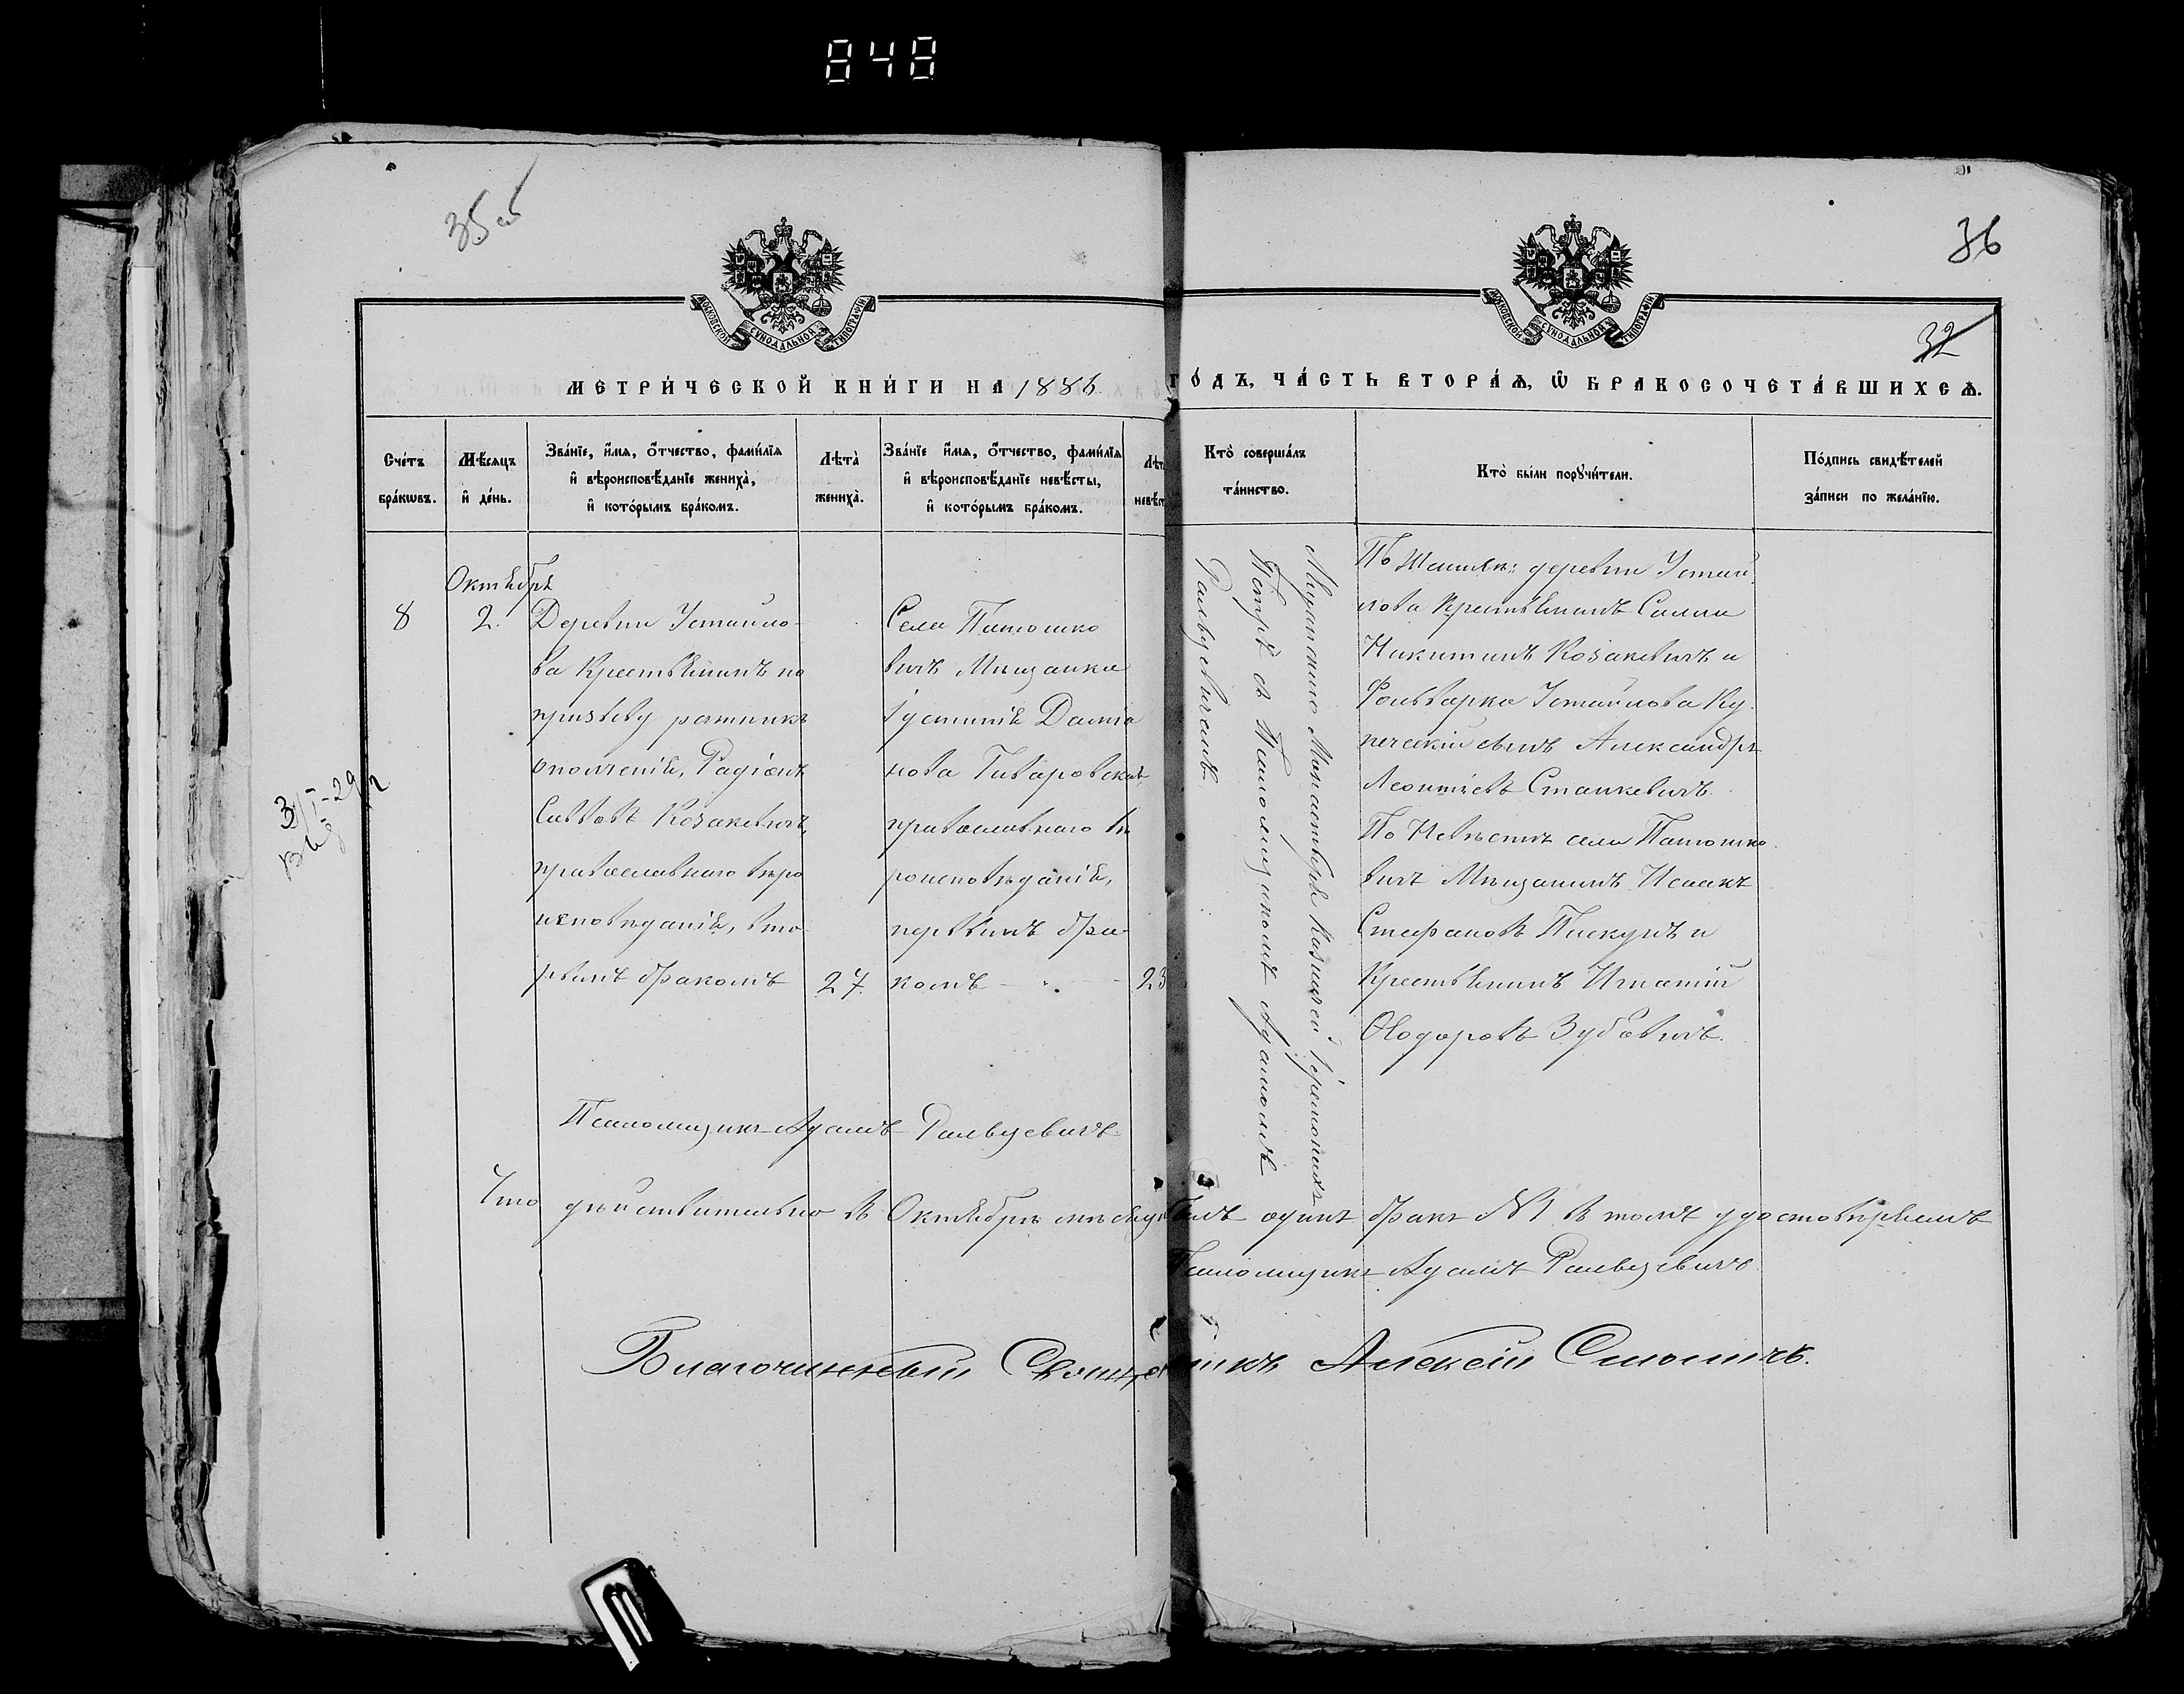 848
35 об
36
32
МОСКОВСКОЙ СѴНОДАЛЬНОЙ ТИПОГРАФІИ
МОСКОВСКОЙ СѴНОДАЛЬНОЙ ТИПОГРАФІИ
МЕТРИ́ЧЕСКОЙ КНИ́ГИ НА 1886 ГО́ДЪ, ЧА́СТЬ ВТОРА́Ѧ, Ѽ БРАКОСОЧЕТА́ВШИХСѦ.
Сче́тъ
бра́кωвъ.
Мѣ́сяцъ
и҆ де́нь.
Зва́нїе, и҆́мѧ, ѻ҆́тчество, фами́лїѧ
и҆ вѣроисповѣ́данїе жениха̀,
и҆ кото́рымъ бра́комъ.
Лѣта̀
жениха̀.
Зва́нїе и҆́мѧ, ѻ҆́тчество, фами́лїѧ
и҆ вѣроисповѣ́данїе невѣ́сты,
и҆ кото́рымъ бра́комъ.
Лѣт
невѣст
Кто̀ соверша́лъ
та́инство.
Кто̀ бы́ли порꙋчи́тели.
По́дпись свидѣ́телей
за́писи по жела́нїю.
Октябрь
8
2.
Деревни Устайло-
ва Крестьянинъ по
призыву ратникъ
ополченія, Радіонъ
Саввовъ Козакевичъ,
православнаго вѣро
исповѣданія, вто
рымъ бракомъ
27
Села
вичъ Мѣщанка
Іустинія Даміа
нова
православнаго вѣ
роисповѣданія,
первымъ бра
комъ
23
Монастыря Казначей Іеромонахъ
Петръ съ Псаломщикомъ Адамомъ
По Женихѣ: деревни Устай
лова Крестьянинъ
Никитинъ Козакевичъ и
Фольварка Устайлова Ку
печескій сынъ Александръ
Леонтіевъ Станкевичъ.
По Невѣстѣ села
вичъ Мѣщанинъ Исаакъ
Стефановъ Пискунъ и
Крестьянинъ Игнатій
Ѳеодоровъ Зубовичъ.
3/I-29
Псаломщикъ Адамъ
Что дѣйствительно въ Октябрѣ мѣсяцѣ былъ одинъ бракъ №1 въ томъ удостовѣряемъ
Псаломщикъ Адамъ
Благочинный Священникъ Алексій